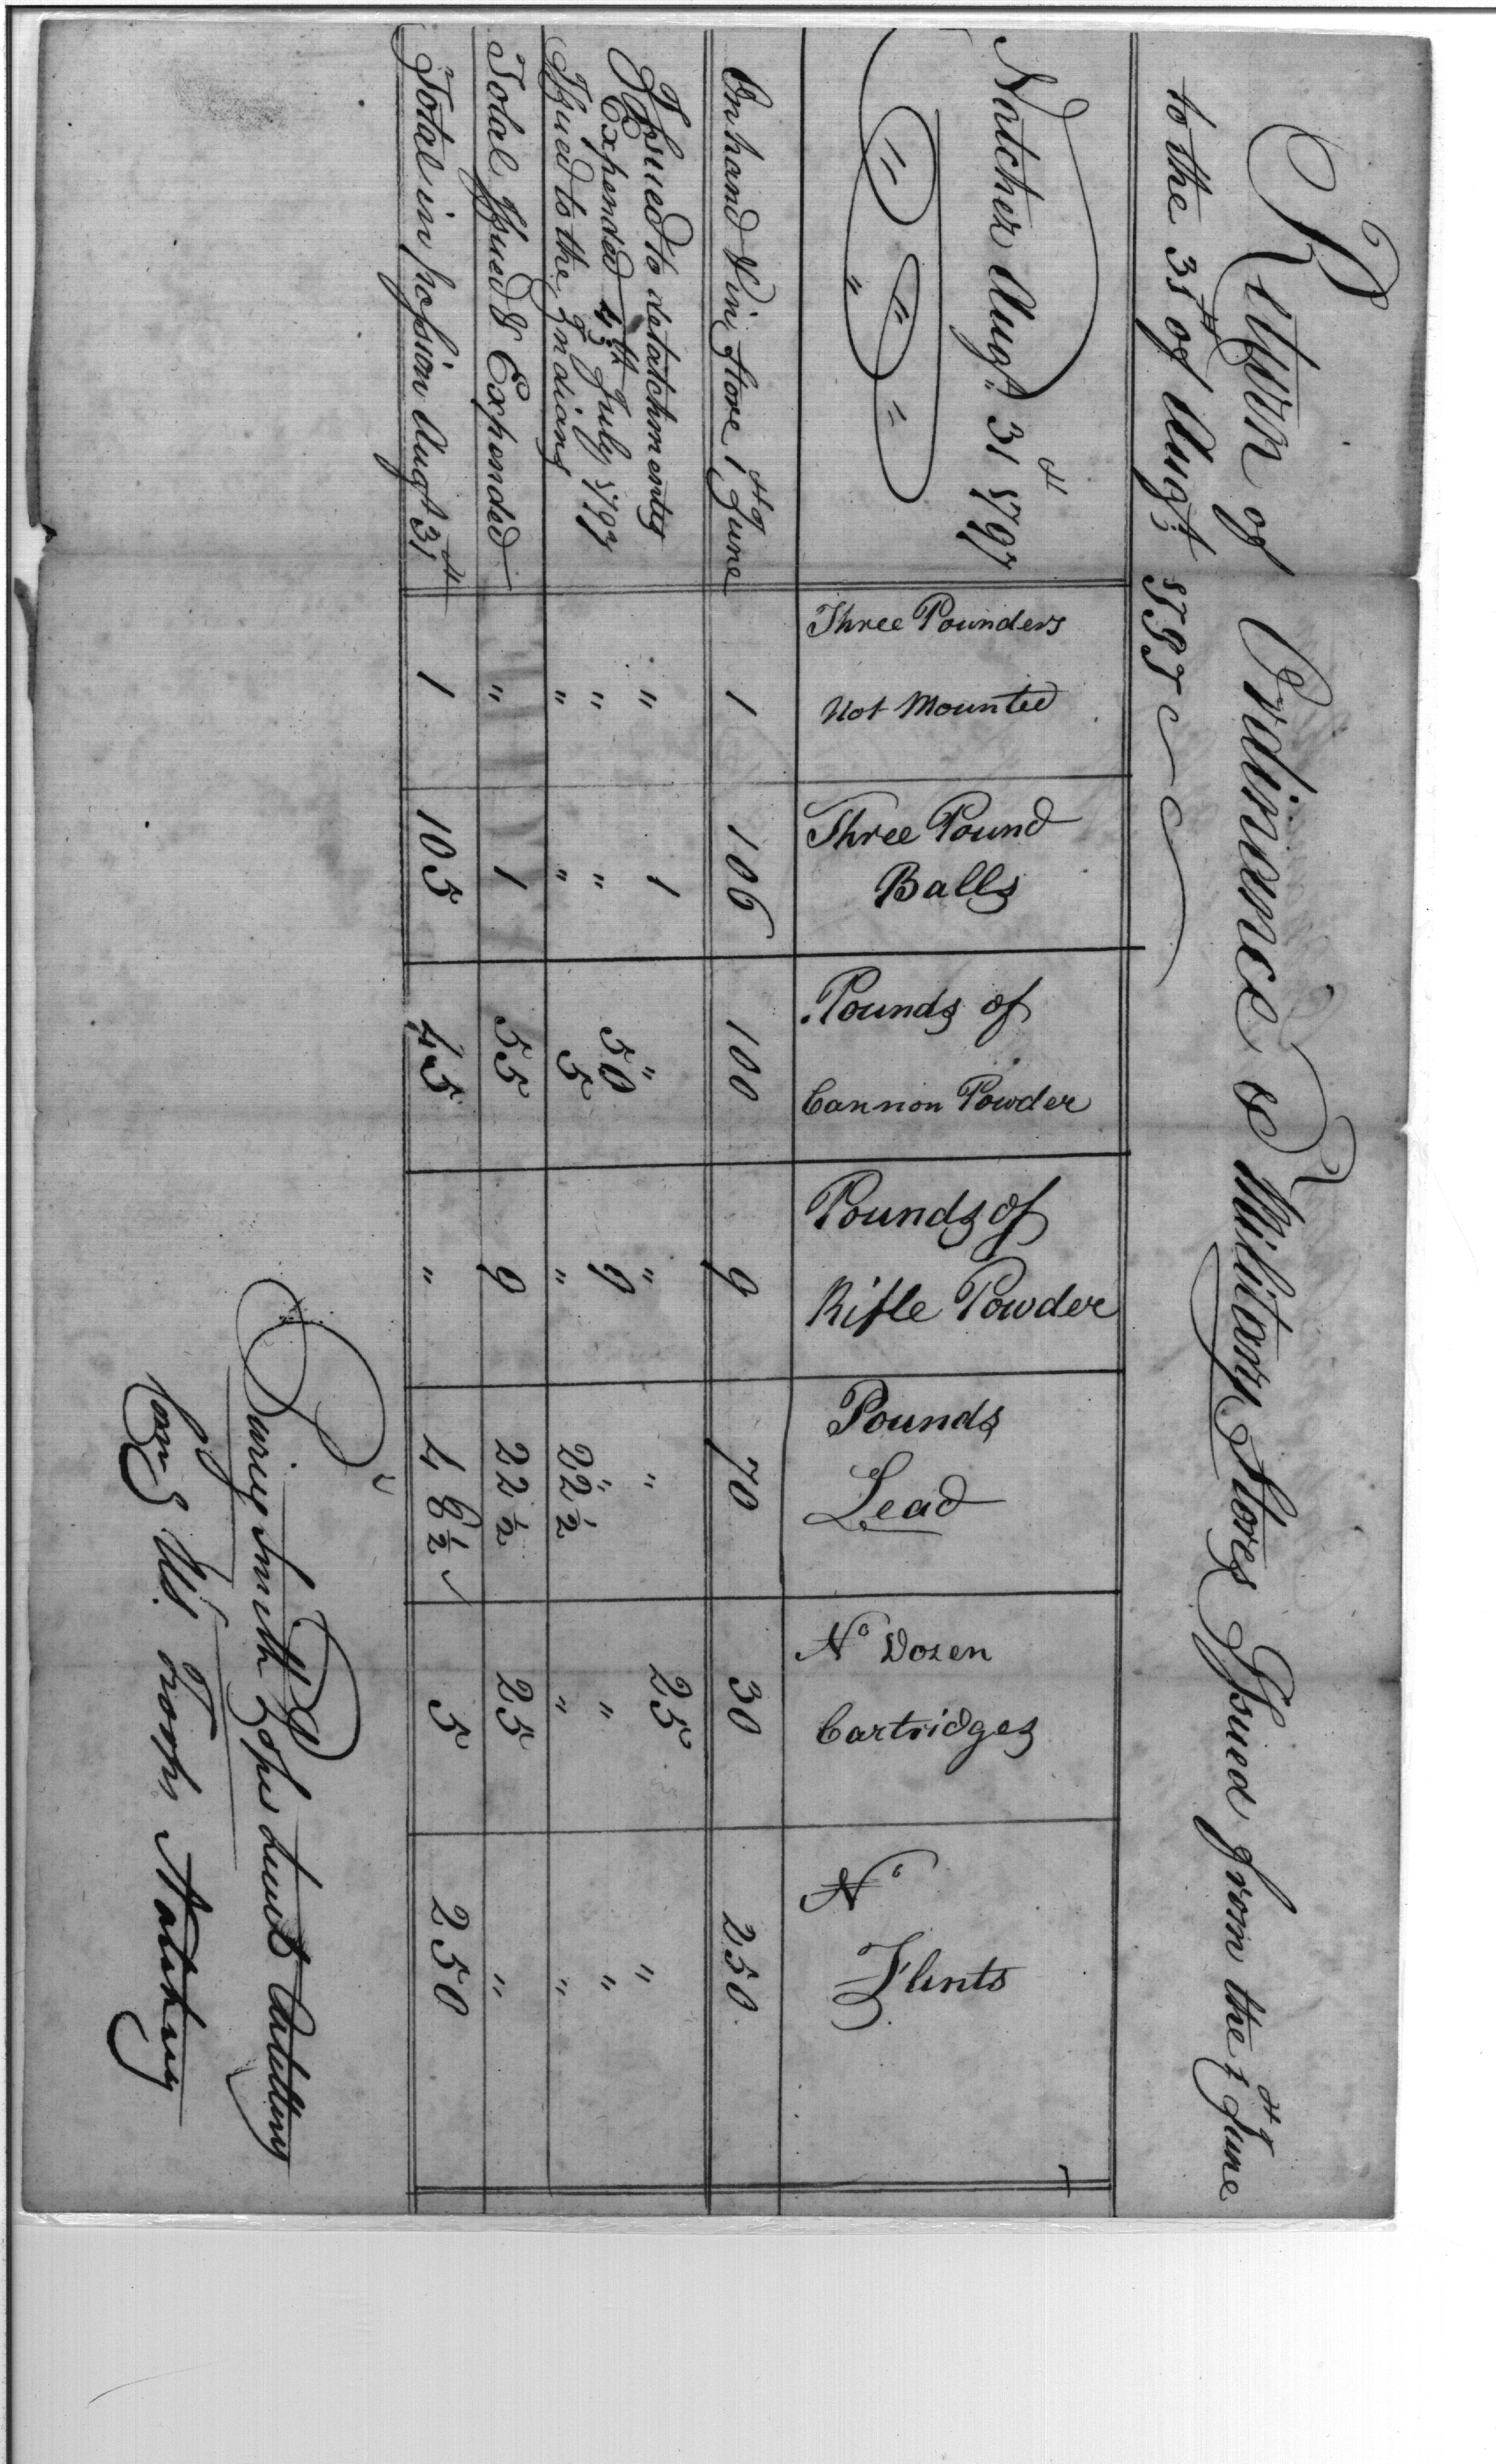 Return of Ordinance & Military Stores Issued from the 1st June
to the 31st of Augt. 1797
Natchez Augt. 31st 1797
Three Pounders
Not Mounted
Three Pound
Balls
Pounds of
Cannon Powder
Pounds of
Rifle Powder
Pounds
Lead
No Dozen
Cartridges
No
Flints
On hand & in Store 1st June 1 106 100 9 70 30 250
Issued to detatchments " 1 " " " 25 "
Expended 4th July 1797 " " 50 9 " " "
Issued to the Indians " " 5 " 22½ " "
Total Issued & Expended " 1 55 9 22½ 25 "
Total in possion Augt 31st 1 105 45 " 48½ 5 250
Piercy Smith Pope Lieut Artillery
Comg U.S. Troops Natchez